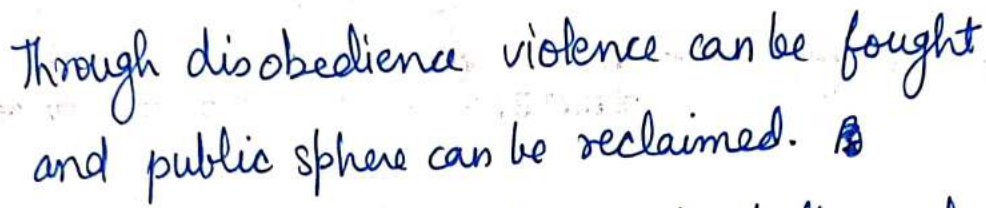 Through disobedience violence can be fought
and public sphere can be reclaimed.